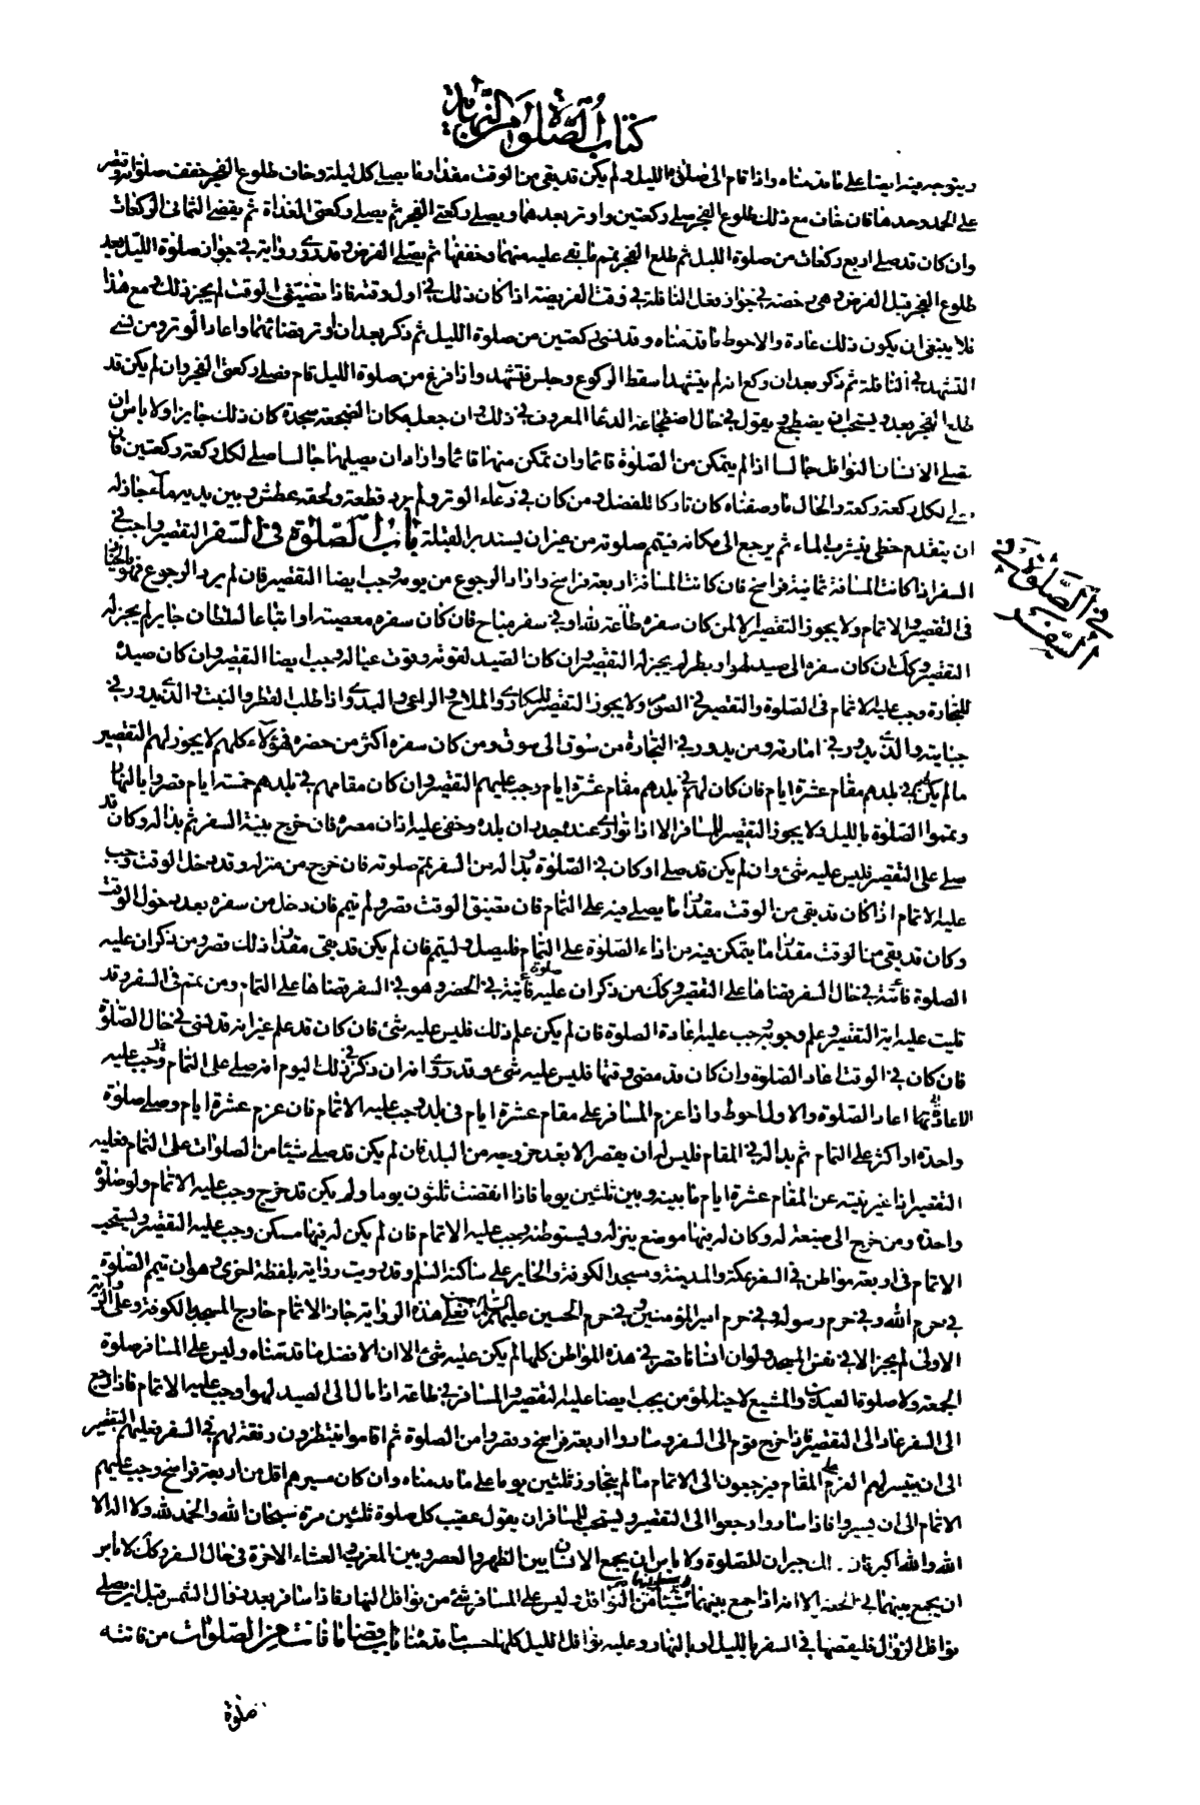 كتاب الصلوة من النهاية
ويتوجه فيه ايضا على ما قدمناه واذا قام الى صلوة الليل ولم يكن قد بقى من الوقت مقدار ما يصلى كل ليلة وخاف طلوع الفجر خفف صلوته واقتصر
على الحمد وحدها فان خاف مع ذلك طلوع الفجر صلى ركعتين واوتر بعدهما ويصلى ركعتى الفجر ثم يصلى ركعتى الغداة ثم يقضى الثمانى الركعات
وان كان قد صلى اربع ركعات من صلوة الليل ثم طلع الفجر تمم ما بقى عليه منهما وخففها ثم يصلى الفرض وقد روى رواية فى جواز صلوة الليل بعد
طلوع الفجر قبل الفرض وهى رخصة فى جواز فعل النافلة فى وقت الفريضة اذا كان ذلك فى اول وقته فاذا تضيق الوقت لم يجز ذلك ومع هذا
فلا ينبغى ان يكون ذلك عادة والاحوط ما قدمناه وقد نسى ركعتين من صلوة الليل ثم ذكر بعد ان اوتر قضاهما واعاد الوتر ومن نسى
التشهد فى النافلة ثم ذكر بعد ان ركع انه لم يتشهد اسقط الركوع وجلس فتشهد واذا فرغ من صلوة الليل قام فصلى ركعتى الفجر وان لم يكن قد
طلع الفجر بعد ويستحب ان يضطجع ويقول فى حال اضطجاعه الدعاء المعروف فى ذلك وان جعل مكان الضجعة سجدة كان ذلك جايزا ولا باس ان
يصلى الانسان النوافل جالسا اذا لم يتمكن من الصلوة قائما وان تمكن منها قائما واذا اراد ان يصليها جالسا صلى لكل ركعة ركعتين فان
صلى لكل ركعة ركعة والحال ما وصفناه كان تاركا للفضل ومن كان فى دعاء الوتر ولم يرد قطعه ولحقه عطش وبين يديه ماء جاز له
ان يتقدم خطى فيشرب الماء ثم يرجع الى مكانه فيتمم صلوته من غير ان يستدبر القبلة باب الصلوة فى السفر التقصير واجب فى
السفر اذا كانت المسافة ثمانية فراسخ فان كانت المسافة اربعة فراسخ واذا اراد الرجوع من يومه وجب ايضا التقصير فان لم يرد الرجوع فهو بالخيار
فى التقصير والاتمام ولا يجوز التقصير الا لمن كان سفره طاعة لله او فى سفر مباح فان كان سفره معصية او اتباعا لسلطان جاير لم يجز له
التقصير وكذلك ان كان سفره الى صيد لهوا وبطرا لم يجز له التقصير وان كان الصيد لقوته وقوت عياله وجب ايضا التقصير وان كان صيده
للتجارة وجب عليه الاتمام فى الصلوة والتقصير فى الصوم ولا يجوز التقصير للمكارى والملاح والراعى والبدوى اذا طلب القطر والنبت والذى يدور فى
جبايته والذى يدور فى امارته ومن يدور فى التجارة من سوق الى سوق ومن كان سفره اكثر من حضره فهؤلاء كلهم لا يجوز لهم التقصير
ما لم يكن لهم فى بلدهم مقام عشرة ايام فان كان لهم فى بلدهم مقام عشرة ايام وجب عليهم التقصير وان كان مقامهم فى بلدهم خمسة ايام قصروا بالنهار
وتمموا الصلوة بالليل ولا يجوز التقصير للمسافر الا اذا توارى عنه جدران بلده وخفى عليه اذان مصره فان خرج بنية السفر ثم بدا له وكان قد
صلى على التقصير فليس عليه شئ وان لم يكن قد صلى او كان فى الصلوة وبدا له من السفر تمم صلوته فان خرج من منزله وقد دخل الوقت وجب
عليه الاتمام اذا كان قد بقى من الوقت مقدار ما يصلى فيه على التمام فان تضيق الوقت قصر ولم يتمم فان دخل من سفره بعد دخول الوقت
وكان قد بقى من الوقت مقدار ما يتمكن فيه من اداء الصلوة على التمام فليصل وليتمم فان لم يكن قد بقى مقدار ذلك قصر ومن ذكر ان عليه
الصلوة فائتة فى حال السفر قضاها على التقصير وكذلك من ذكر ان عليه صلوة فائتة فى الحضر وهو فى السفر قضاها على التمام ومن تمم فى السفر وقد
تليت عليه اية التقصير وعلم وجوبه وجب عليه اعادة الصلوة فان لم يكن علم ذلك فليس عليه شئ فان كان قد علم غير انه قد نسى فى حال الصلوة
فان كان فى الوقت اعاد الصلوة وان كان قد مضى وقتها فليس عليه شئ وقد روى انه ان ذكر فى ذلك اليوم انه صلى على التمام وجب عليه
الاعادة اعاد الصلوة والاول احوط واذا عزم المسافر على مقام عشرة ايام فى بلد وجب عليه الاتمام فان عزم عشرة ايام وصلى صلوة
واحدة او اكثر على التمام ثم بدا له فى المقام فليس له ان يقصر الا بعد خروجه من البلد فان لم يكن قد صلى شيئا من الصلوات على التمام فعليه
التقصير اذا غير نيته عن المقام عشرة ايام ما بينه وبين ثلثين يوما فاذا انقضت ثلثون يوما ولم يكن قد خرج وجب عليه الاتمام ولو صلوة
واحدة ومن خرج الى ضيعة له وكان له فيها موضع ينزله ويستوطنه يجب عليه الاتمام فان لم يكن له فيها مسكن وجب عليه التقصير ويستحب
الاتمام فى اربعة مواطن فى السفر بمكة والمدينة ومسجد الكوفة والحاير على ساكنه السلم وقد رويت رواية بلفظة اخرى وهو ان يتمم الصلوة
فى حرم الله وفى حرم رسوله وفى حرم امير المؤمنين وفى حرم الحسين عليهما السلم فعلى هذه الرواية جاز الاتمام خارج المسجد بالكوفة وعلى الرواية
الاولى لم يجز الا فى نفس المسجد ولو ان انسانا قصر فى هذه المواطن كلها لم يكن عليه شئ الا ان الافضل ما قدمناه وليس على المسافر صلوة
الجمعة ولا صلوة العيدين والمشيع لاخيه المؤمن يجب ايضا عليه التقصير والمسافر فى طاعة اذا مال الى الصيد لهوا وجب عليه الاتمام فاذا رجع
الى السفر عاد الى التقصير فاذا خرج قوم الى السفر وساروا اربعة فراسخ وقصروا من الصلوة ثم اقاموا ينتظرون رفقة لهم فى السفر فعليهم التقصير
الى ان يتيسر لهم العزم على المقام فيرجعون الى الاتمام ما لم يتجاوز ثلثين يوما على ما قدمناه وان كان مسيرهم اقل من اربعة فراسخ وجب عليهم
الاتمام الى ان يسيروا فاذا ساروا رجعوا الى التقصير ويستحب للمسافر ان يقول عقيب كل صلوة ثلثين مرة سبحان الله والحمد لله ولا اله الا
الله والله اكبر فان ذلك جبران للصلوة ولا باس ان يجمع الانسان بين الظهر والعصر وبين المغرب والعشاء الاخرة فى حال السفر وكذلك لا باس
ان يجمع بينهما فى الحضر الا انه اذا جمع بينهما شيئا من النوافل وليس على المسافر شئ من نوافل النهار فاذا سافر بعد زوال الشمس قبل ان يصلى
نوافل الزوال فليقضها فى السفر بالليل او بالنهار وعليه نوافل الليل كلها حسب ما قدمناه باب قضاء ما فات من الصلوات من فاتته
صلوة
فى الصلوة فى
السفر